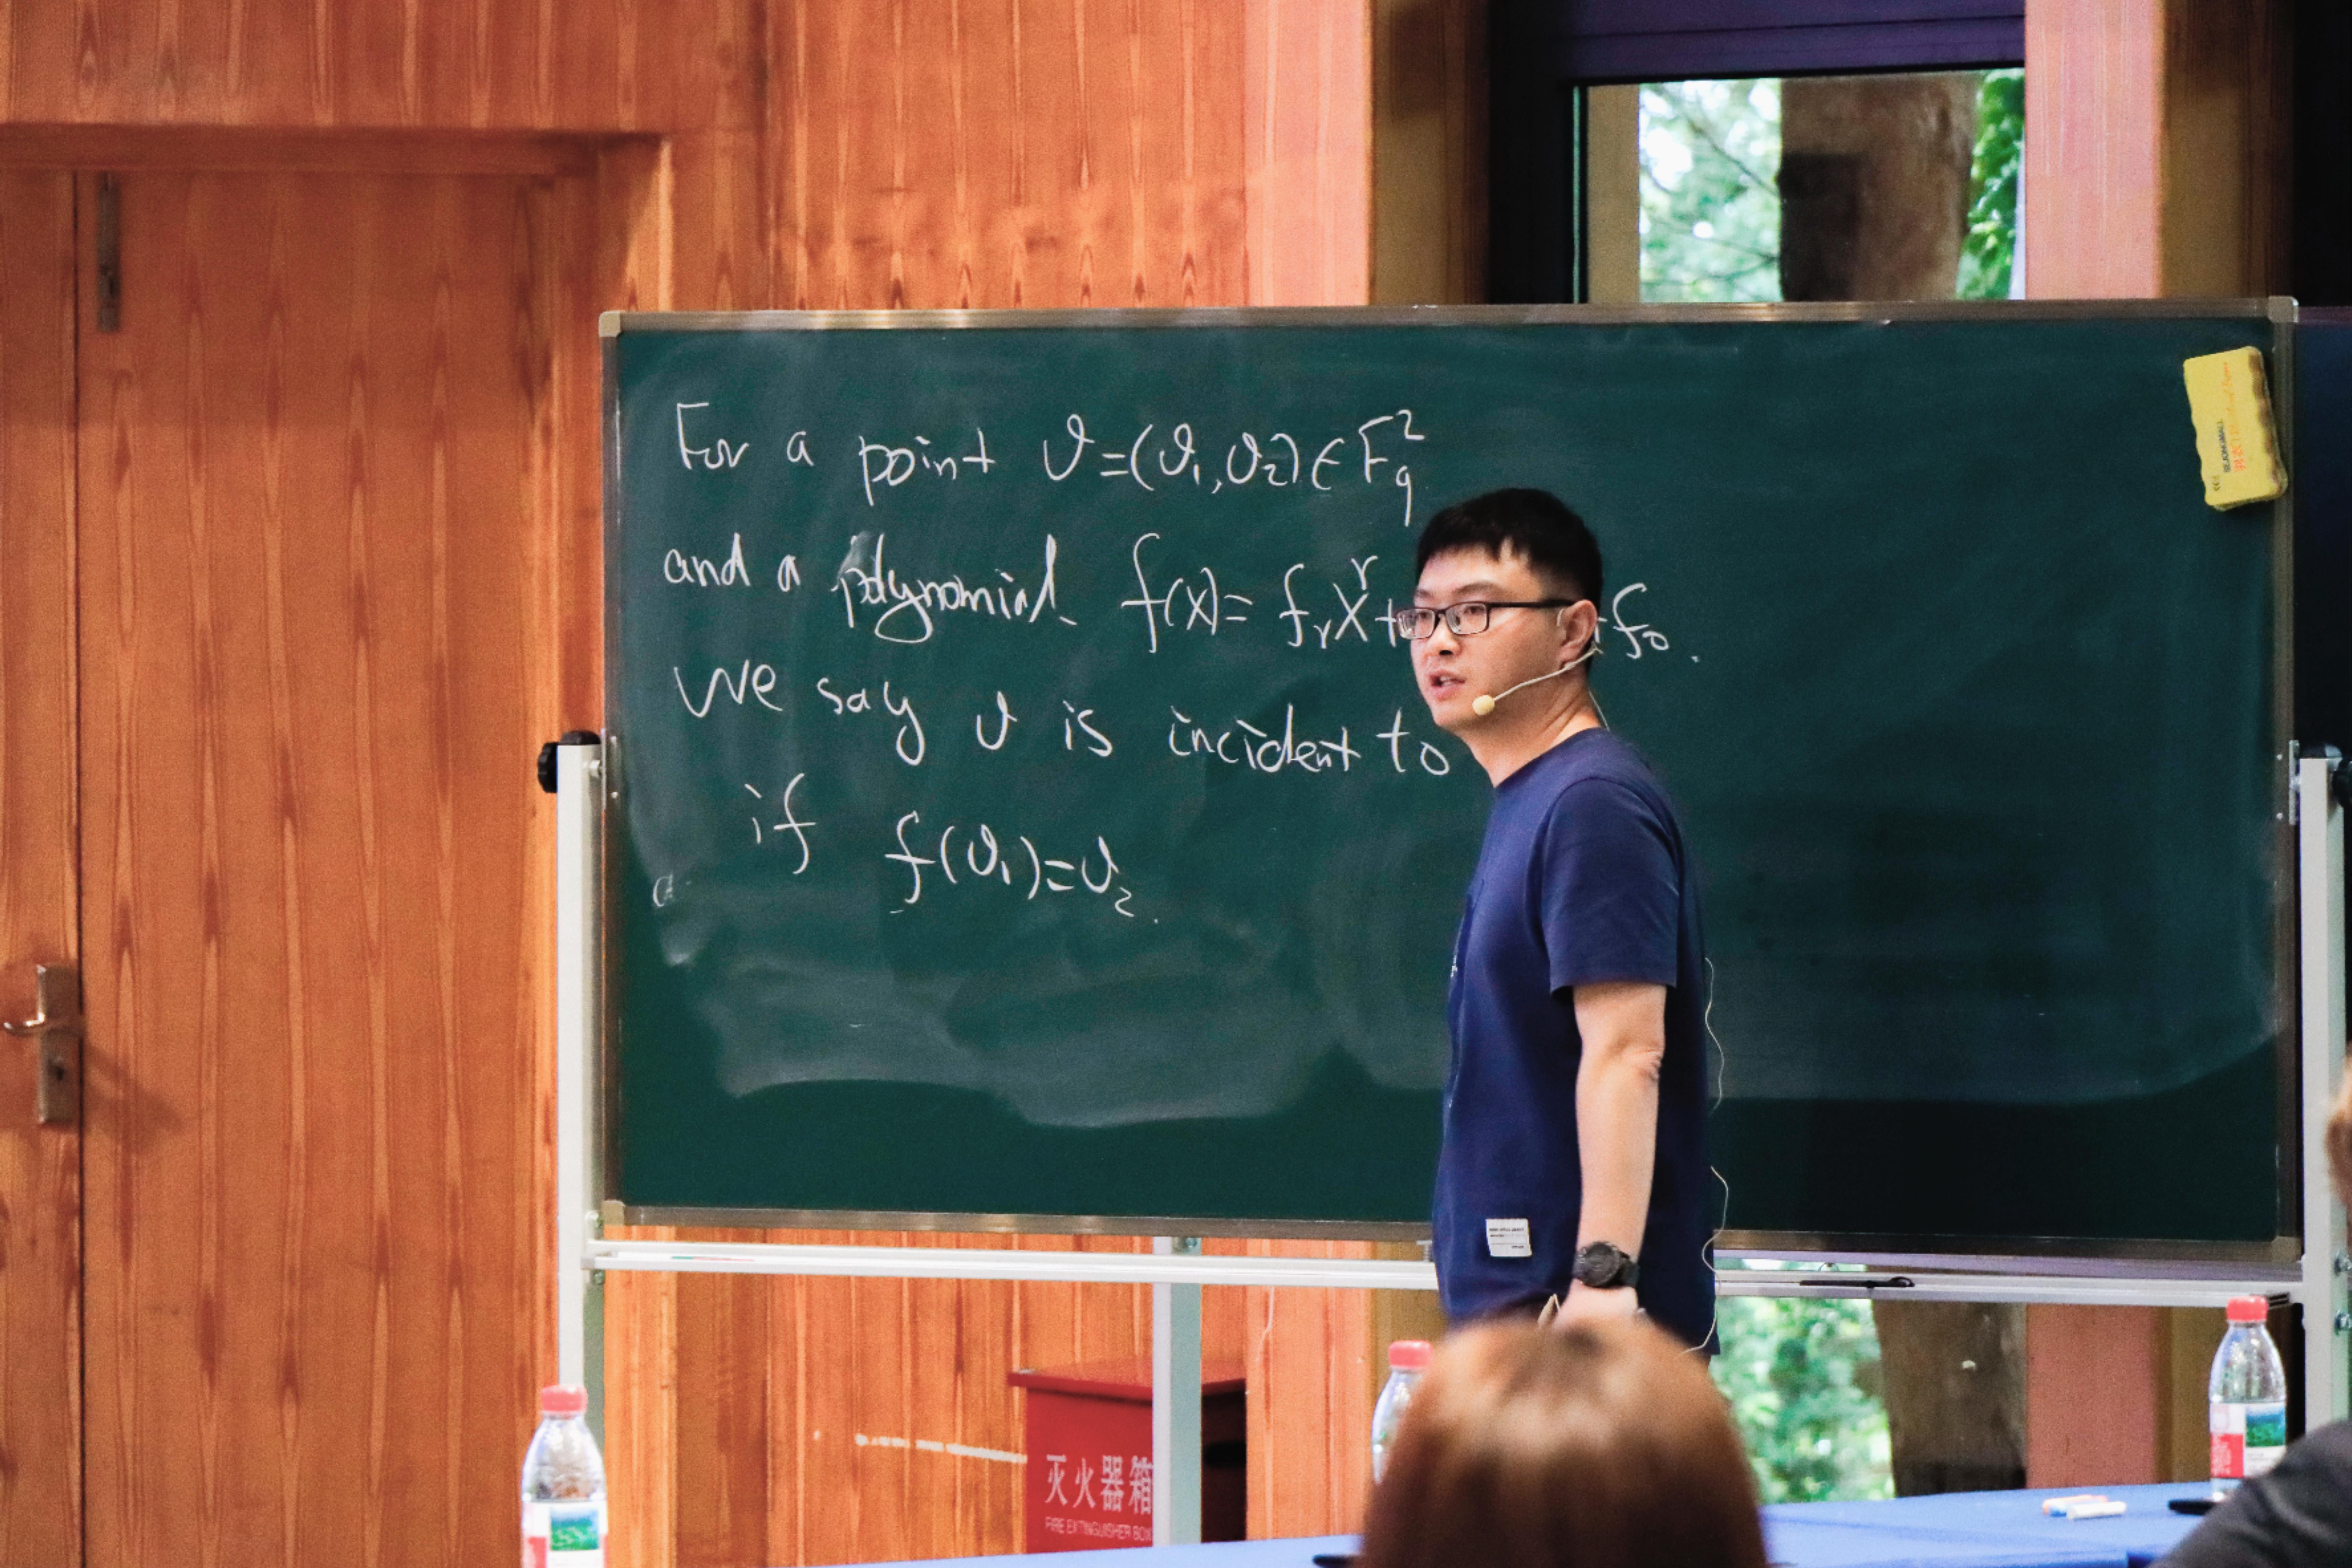 For a point v=(v₁,v₂)∈F_q^2
and a polynomial f(x)= f_r X^r + +f₀.
We say v is incident to
if f(v₁)=v₂.
灭火器箱
FIRE EXTINGUISHER BOX